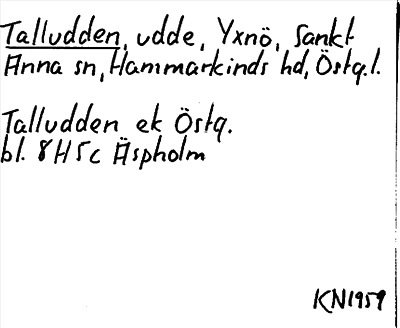 Talludden, udde, Yxnö, Sankt
Anna sn, Hammarkinds hd, Östg.l.
Talludden ek Östg.
bl. 8H5c Äspholm
KN1959